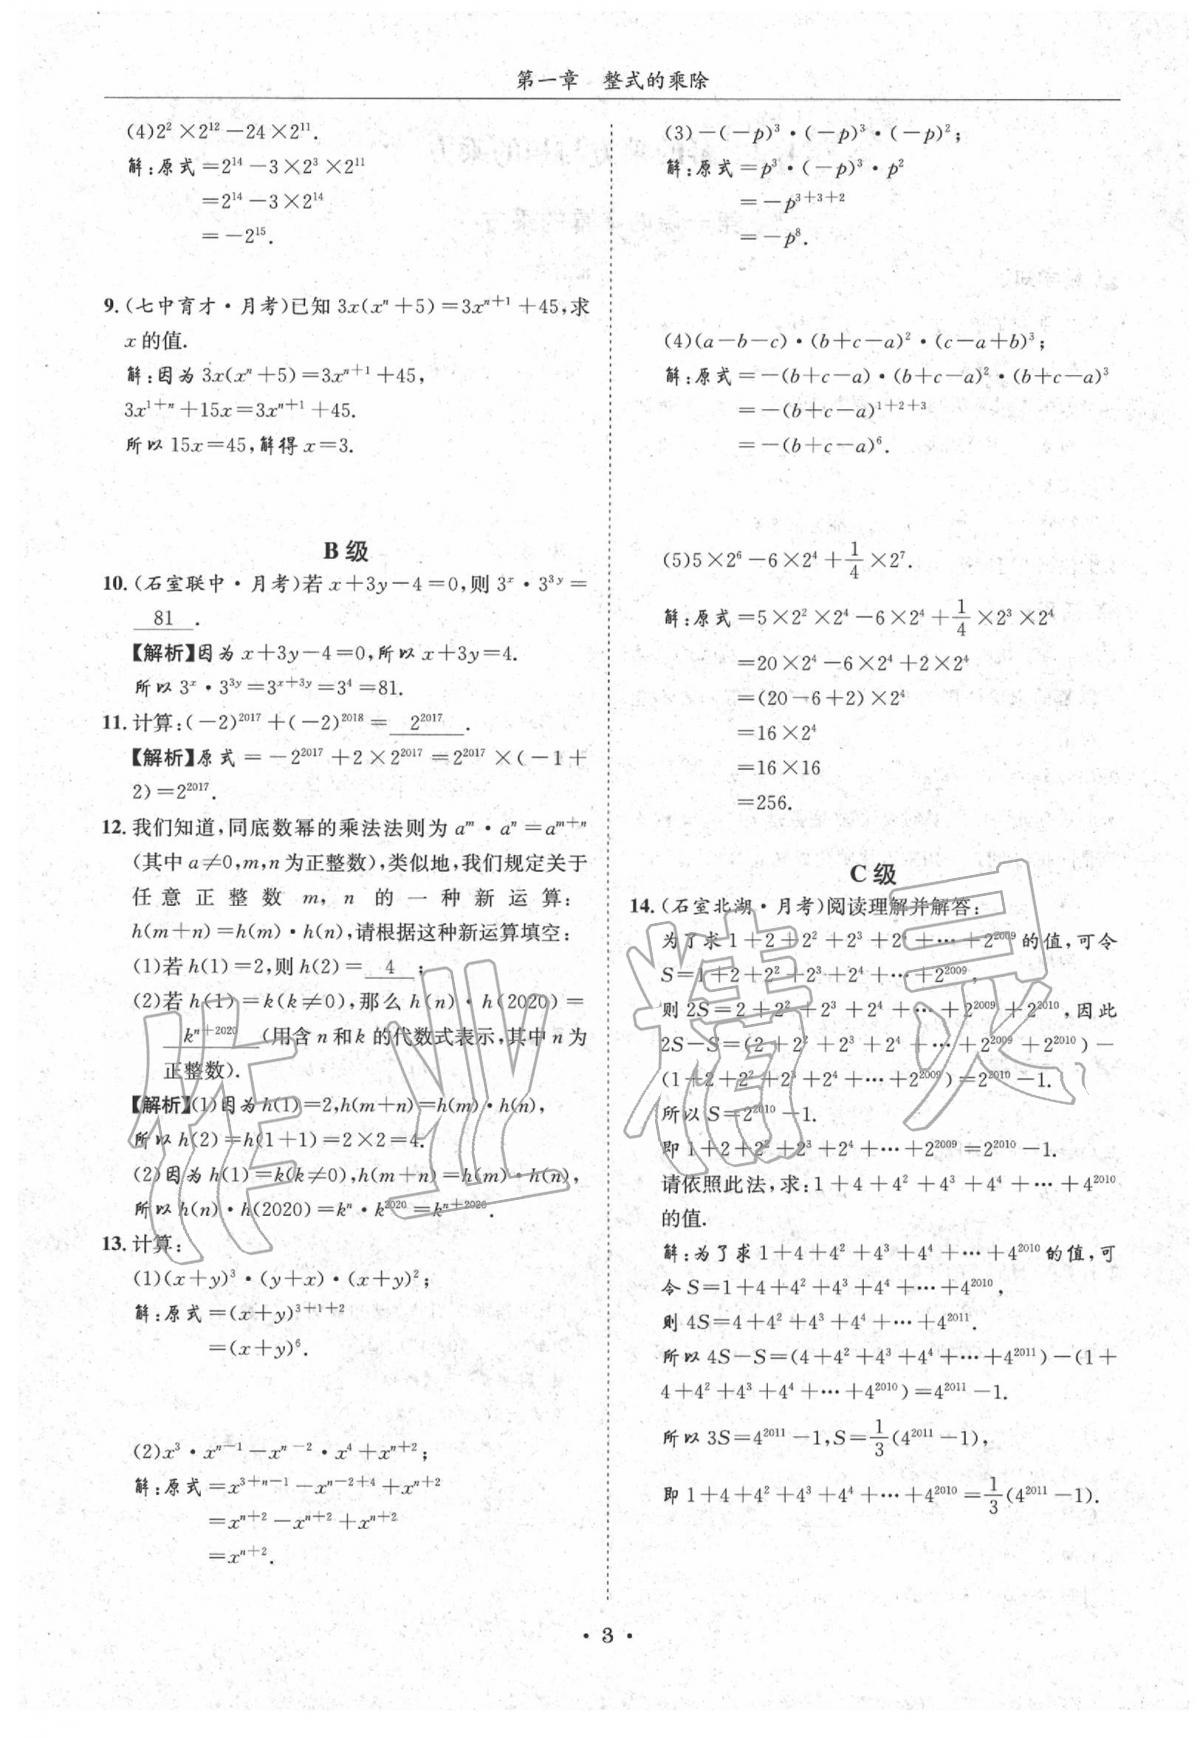 第一章 整式的乘除
(4)2²×2¹²-24×2¹¹.
解:原式=2¹⁴-3×2³×2¹¹
=2¹⁴-3×2¹⁴
=-2¹⁵.
9.(七中育才·月考)已知3x(xⁿ+5)=3xⁿ⁺¹+45,求
x的值.
解:因为3x(xⁿ+5)=3xⁿ⁺¹+45,
3x¹⁺ⁿ+15x=3xⁿ⁺¹+45.
所以15x=45,解得x=3.
B级
10.(石室联中·月考)若x+3y-4=0,则3ˣ·3³ʸ=
81.
【解析】因为x+3y-4=0,所以x+3y=4.
所以3ˣ·3³ʸ=3ˣ⁺³ʸ=3⁴=81.
11.计算:(-2)²⁰¹⁷+(-2)²⁰¹⁸=2²⁰¹⁷.
【解析】原式=-2²⁰¹⁷+2×2²⁰¹⁷=2²⁰¹⁷×(-1+
2)=2²⁰¹⁷.
12.我们知道,同底数幂的乘法法则为aᵐ·aⁿ=aᵐ⁺ⁿ
(其中a≠0,m,n为正整数),类似地,我们规定关于
任意正整数m,n的一种新运算:
h(m+n)=h(m)·h(n),请根据这种新运算填空:
(1)若h(1)=2,则h(2)=4;
(2)若h(1)=k(k≠0),那么h(n)·h(2020)=
kⁿ⁺²⁰²⁰(用含n和k的代数式表示,其中n为
正整数).
【解析】(1)因为h(1)=2,h(m+n)=h(m)·h(n),
所以h(2)=h(1+1)=2×2=4.
(2)因为h(1)=k(k≠0),h(m+n)=h(m)·h(n),
所以h(n)·h(2020)=kⁿ·k²⁰²⁰=kⁿ⁺²⁰²⁰.
13.计算:
(1)(x+y)³·(y+x)·(x+y)²;
解:原式=(x+y)³⁺¹⁺²
=(x+y)⁶.
(2)x³·xⁿ⁻¹-xⁿ⁻²·x⁴+xⁿ⁺²;
解:原式=x³⁺ⁿ⁻¹-xⁿ⁻²⁺⁴+xⁿ⁺²
=xⁿ⁺²-xⁿ⁺²+xⁿ⁺²
=xⁿ⁺².
(3)-(-p)³·(-p)³·(-p)²;
解:原式=p³·(-p)³·p²
=-p³⁺³⁺²
=-p⁸.
(4)(a-b-c)·(b+c-a)²·(c-a+b)³;
解:原式=-(b+c-a)·(b+c-a)²·(b+c-a)³
=-(b+c-a)¹⁺²⁺³
=-(b+c-a)⁶.
(5)5×2⁶-6×2⁴+1/4×2⁷.
解:原式=5×2²×2⁴-6×2⁴+1/4×2³×2⁴
=20×2⁴-6×2⁴+2×2⁴
=(20-6+2)×2⁴
=16×2⁴
=16×16
=256.
C级
14.(石室北湖·月考)阅读理解并解答:
为了求1+2+2²+2³+2⁴+…+2²⁰⁰⁹的值,可令
S=1+2+2²+2³+2⁴+…+2²⁰⁰⁹,
则2S=2+2²+2³+2⁴+…+2²⁰⁰⁹+2²⁰¹⁰,因此
2S-S=(2+2²+2³+2⁴+…+2²⁰⁰⁹+2²⁰¹⁰)-
(1+2+2²+2³+2⁴+…+2²⁰⁰⁹)=2²⁰¹⁰-1.
所以S=2²⁰¹⁰-1.
即1+2+2²+2³+2⁴+…+2²⁰⁰⁹=2²⁰¹⁰-1.
请依照此法,求:1+4+4²+4³+4⁴+…+4²⁰¹⁰
的值.
解:为了求1+4+4²+4³+4⁴+…+4²⁰¹⁰的值,可
令S=1+4+4²+4³+4⁴+…+4²⁰¹⁰,
则4S=4+4²+4³+4⁴+…+4²⁰¹¹.
所以4S-S=(4+4²+4³+4⁴+…+4²⁰¹¹)-(1+
4+4²+4³+4⁴+…+4²⁰¹⁰)=4²⁰¹¹-1.
所以3S=4²⁰¹¹-1,S=1/3(4²⁰¹¹-1),
即1+4+4²+4³+4⁴+…+4²⁰¹⁰=1/3(4²⁰¹¹-1).
·3·
作业精灵